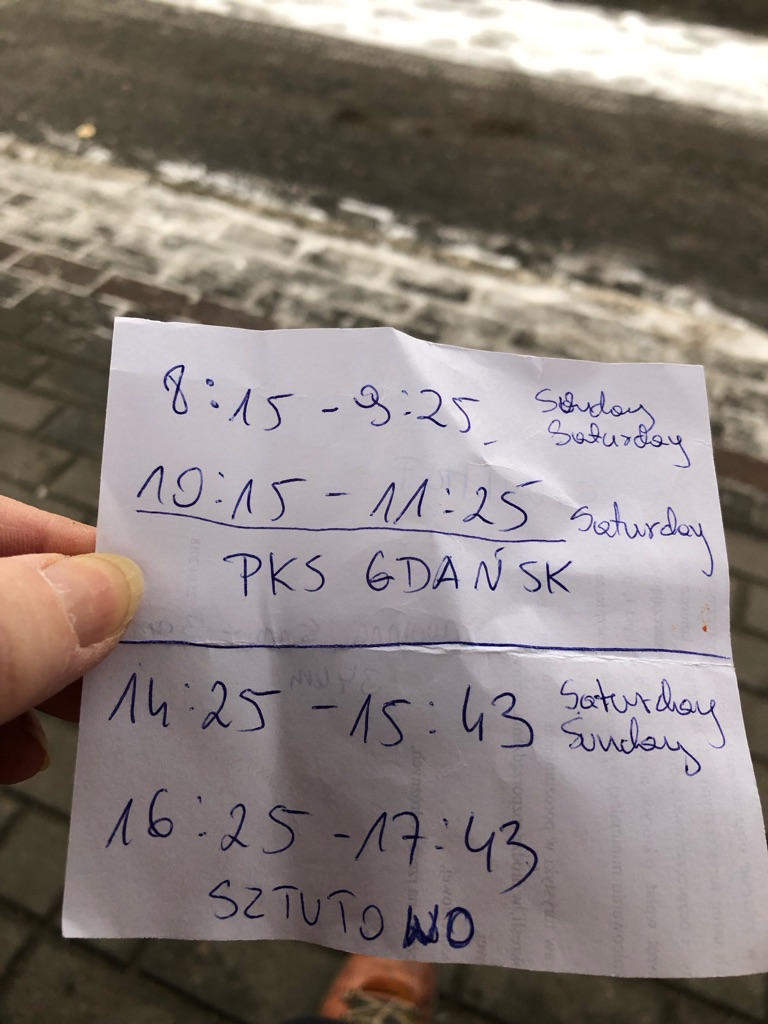 8:15 - 9:25 Sunday
Saturday
10:15 - 11:25 Saturday
PKS GDAŃSK
14:25 - 15:43 Saturday
Sunday
16:25 - 17:43
SZTUTOWO